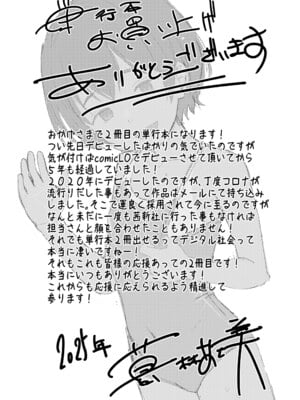 単行本
お買い上げ
ありがとうございます
おかげさまで2冊目の単行本になります！
つい先日デビューしたばかりの気でいたのですが
気が付けばcomicLOでデビューさせて頂いてから
5年も経過していました！
2020年にデビューしたのですが、丁度コロナが
流行りだした事もあって作品はメールにて持ち込み
しました。そこで運良く採用されて今に至るのですが
なんと未だに一度も茜新社に行った事もなければ
担当さんと顔を合わせたこともありません！
それでも単行本2冊出せるってデジタル社会って
本当に凄いですねー！
それもこれも皆様の応援あっての2冊目です！
本当にいつもありがとうございます！
これからも応援に応えられるよう精進して
参ります！
2025年